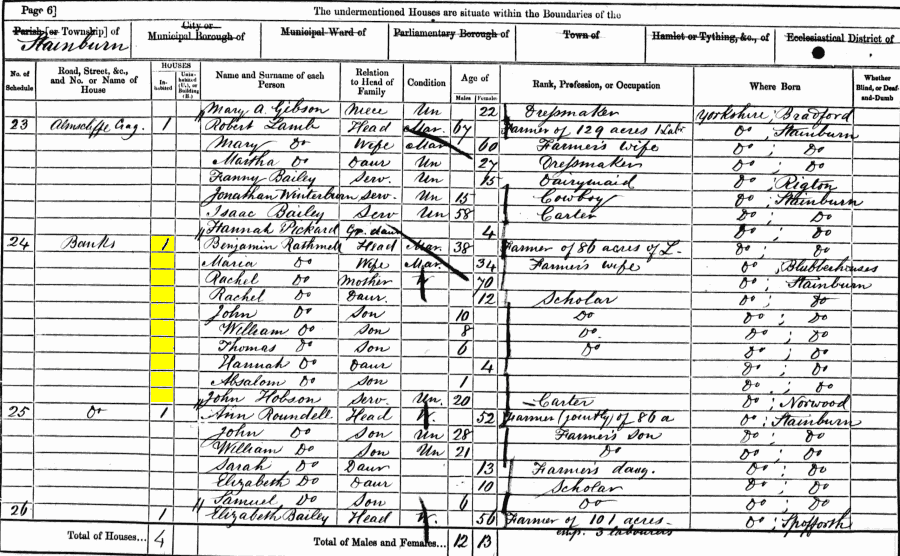 Page 6] The undermentioned Houses are situate within the Boundaries of the
Parish [or Township] of Stainburn City or Municipal Borough of Municipal Ward of Parliamentary Borough of Town of Hamlet or Tything, &c., of Ecclesiastical District of
No. of Schedule Road, Street, &c., and No. or Name of House HOUSES In-habited Unin-habited (U.), or Building (B.) Name and Surname of each Person Relation to Head of Family Condition Age of Males Females Rank, Profession, or Occupation Where Born Whether Blind, or Deaf-and-Dumb
Mary A. Gibson Niece Un 22 Dressmaker Yorkshire, Bradford
23 Almscliffe Crag. 1 Robert Lamb Head Mar. 67 Farmer of 129 acres 1 Labr Do ; Stainburn
Mary Do Wife Mar 60 Farmer's wife Do ; Do
Martha Do Daur Un 27 Dressmaker Do ; Do
Fanny Bailey Serv. Un 15 Dairymaid Do ; Rigton
Jonathan Winterburn Serv. Un 15 Cowboy Do ; Stainburn
Isaac Bailey Serv Un 58 Carter Do ; Do
Hannah Pickard Gr. daur 4 Do ; Do
24 Banks 1 Benjamin Rathmell Head Mar. 38 Farmer of 86 acres of L. Do ; Do
Maria Do Wife Mar. 34 Farmer's wife Do ; Blubberhouses
Rachel Do Mother W 70 Do ; Stainburn
Rachel Do Daur. 12 Scholar Do ; Do
John Do Son 10 Do Do ; Do
William Do Son 8 Do Do ; Do
Thomas Do Son 6 Do Do ; Do
Hannah Do Daur 4 Do ; Do
Absalom Do Son 1 Do ; Do
John Hobson Serv. Un. 20 Carter Do ; Norwood
25 Do 1 Ann Roundell Head W. 52 Farmer (jointly) of 86 a Do ; Stainburn
John Do Son Un 28 Farmer's Son Do ; Do
William Do Son Un 21 Do Do ; Do
Sarah Do Daur 13 Farmer's daug. Do ; Do
Elizabeth Do Daur 10 Scholar Do ; Do
Samuel Do Son 6 Do Do ; Do
26 1 Elizabeth Bailey Head W. 56 Farmer of 101 acres- Do ; Spofforth
emp. 3 labourers
Total of Houses... 4 Total of Males and Females... 12 13